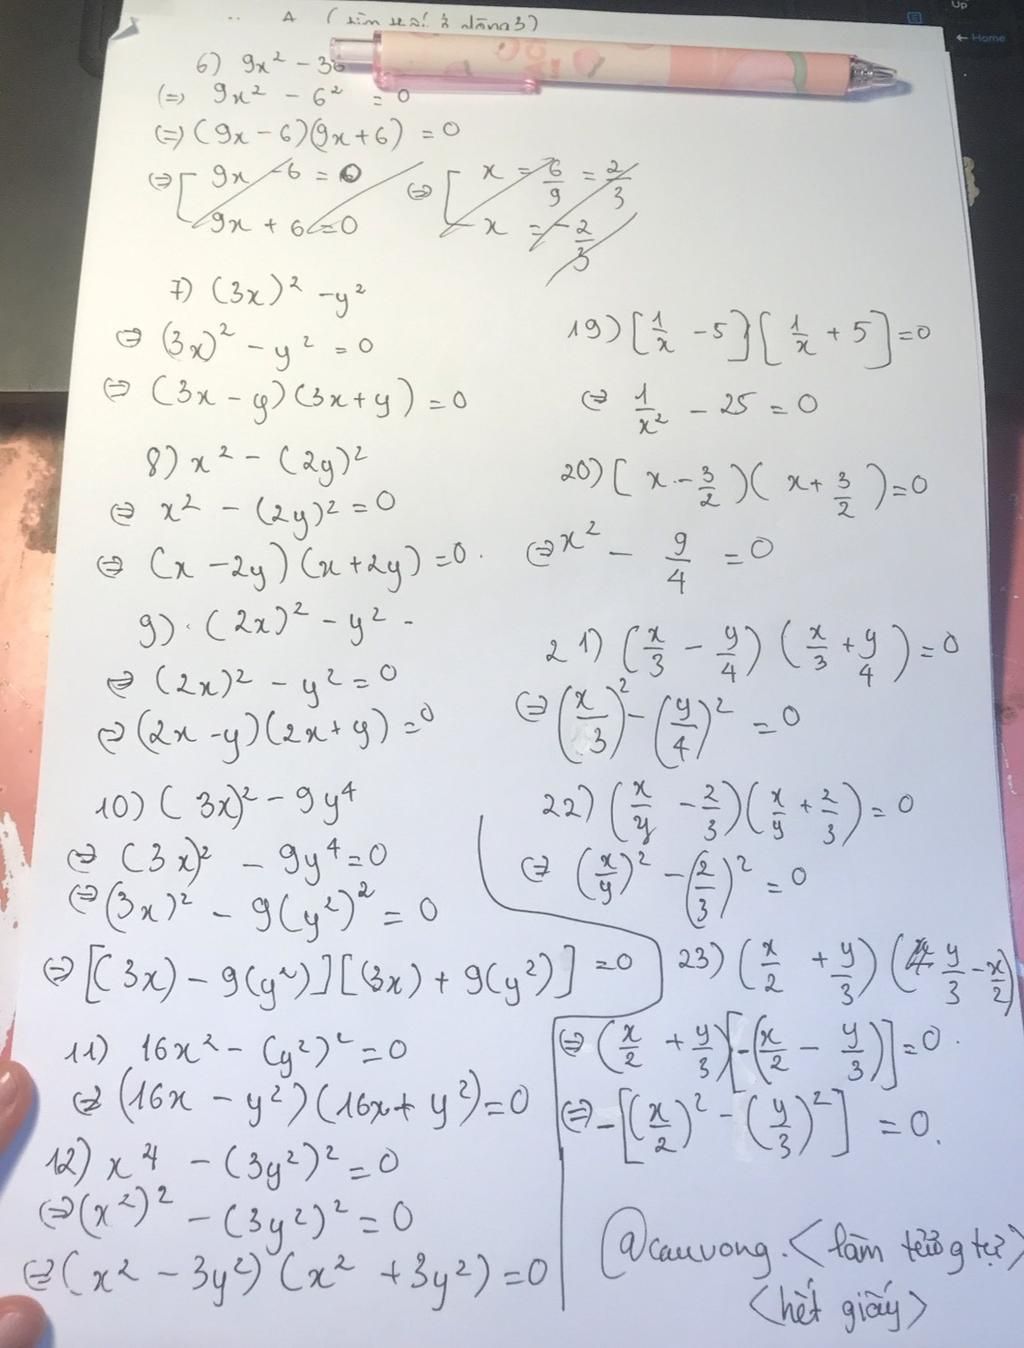 A
6) 9x² - 36
(=) 9x² - 6² = 0
(=) (9x - 6)(9x + 6) = 0
⇔ [ 9x - 6 = 0 ⇔ [ x = 6/9 = 2/3
9x + 6 = 0 x = -2/3
7) (3x)² - y²
⇔ (3x)² - y² = 0
⇔ (3x - y)(3x + y) = 0
8) x² - (2y)²
⇔ x² - (2y)² = 0
⇔ (x - 2y)(x + 2y) = 0.
9). (2x)² - y² -
⇔ (2x)² - y² = 0
⇔ (2x - y)(2x + y) = 0
10) (3x)² - 9y⁴
⇔ (3x)² - 9y⁴ = 0
⇔ (3x)² - 9(y²)² = 0
⇔ [(3x) - 9(y²)][(3x) + 9(y²)] = 0
11) 16x² - (y²)² = 0
⇔ (16x - y²)(16x + y²) = 0
12) x⁴ - (3y²)² = 0
⇔ (x²)² - (3y²)² = 0
⇔ (x² - 3y²)(x² + 3y²) = 0
19) [1/x - 5][1/x + 5] = 0
⇔ 1/x² - 25 = 0
20) (x - 3/2)(x + 3/2) = 0
⇔ x² - 9/4 = 0
21) (x/3 - y/4)(x/3 + y/4) = 0
⇔ (x/3)² - (y/4)² = 0
22) (x/y - 2/3)(x/y + 2/3) = 0
⇔ (x/y)² - (2/3)² = 0
23) (x/2 + y/3)(y/3 - x/2)
⇔ (x/2 + y/3)[-(x/2 - y/3)] = 0.
⇔ -[(x/2)² - (y/3)²] = 0.
@cauvong. <làm tương tự>
<hết giấy>
Up
← Home